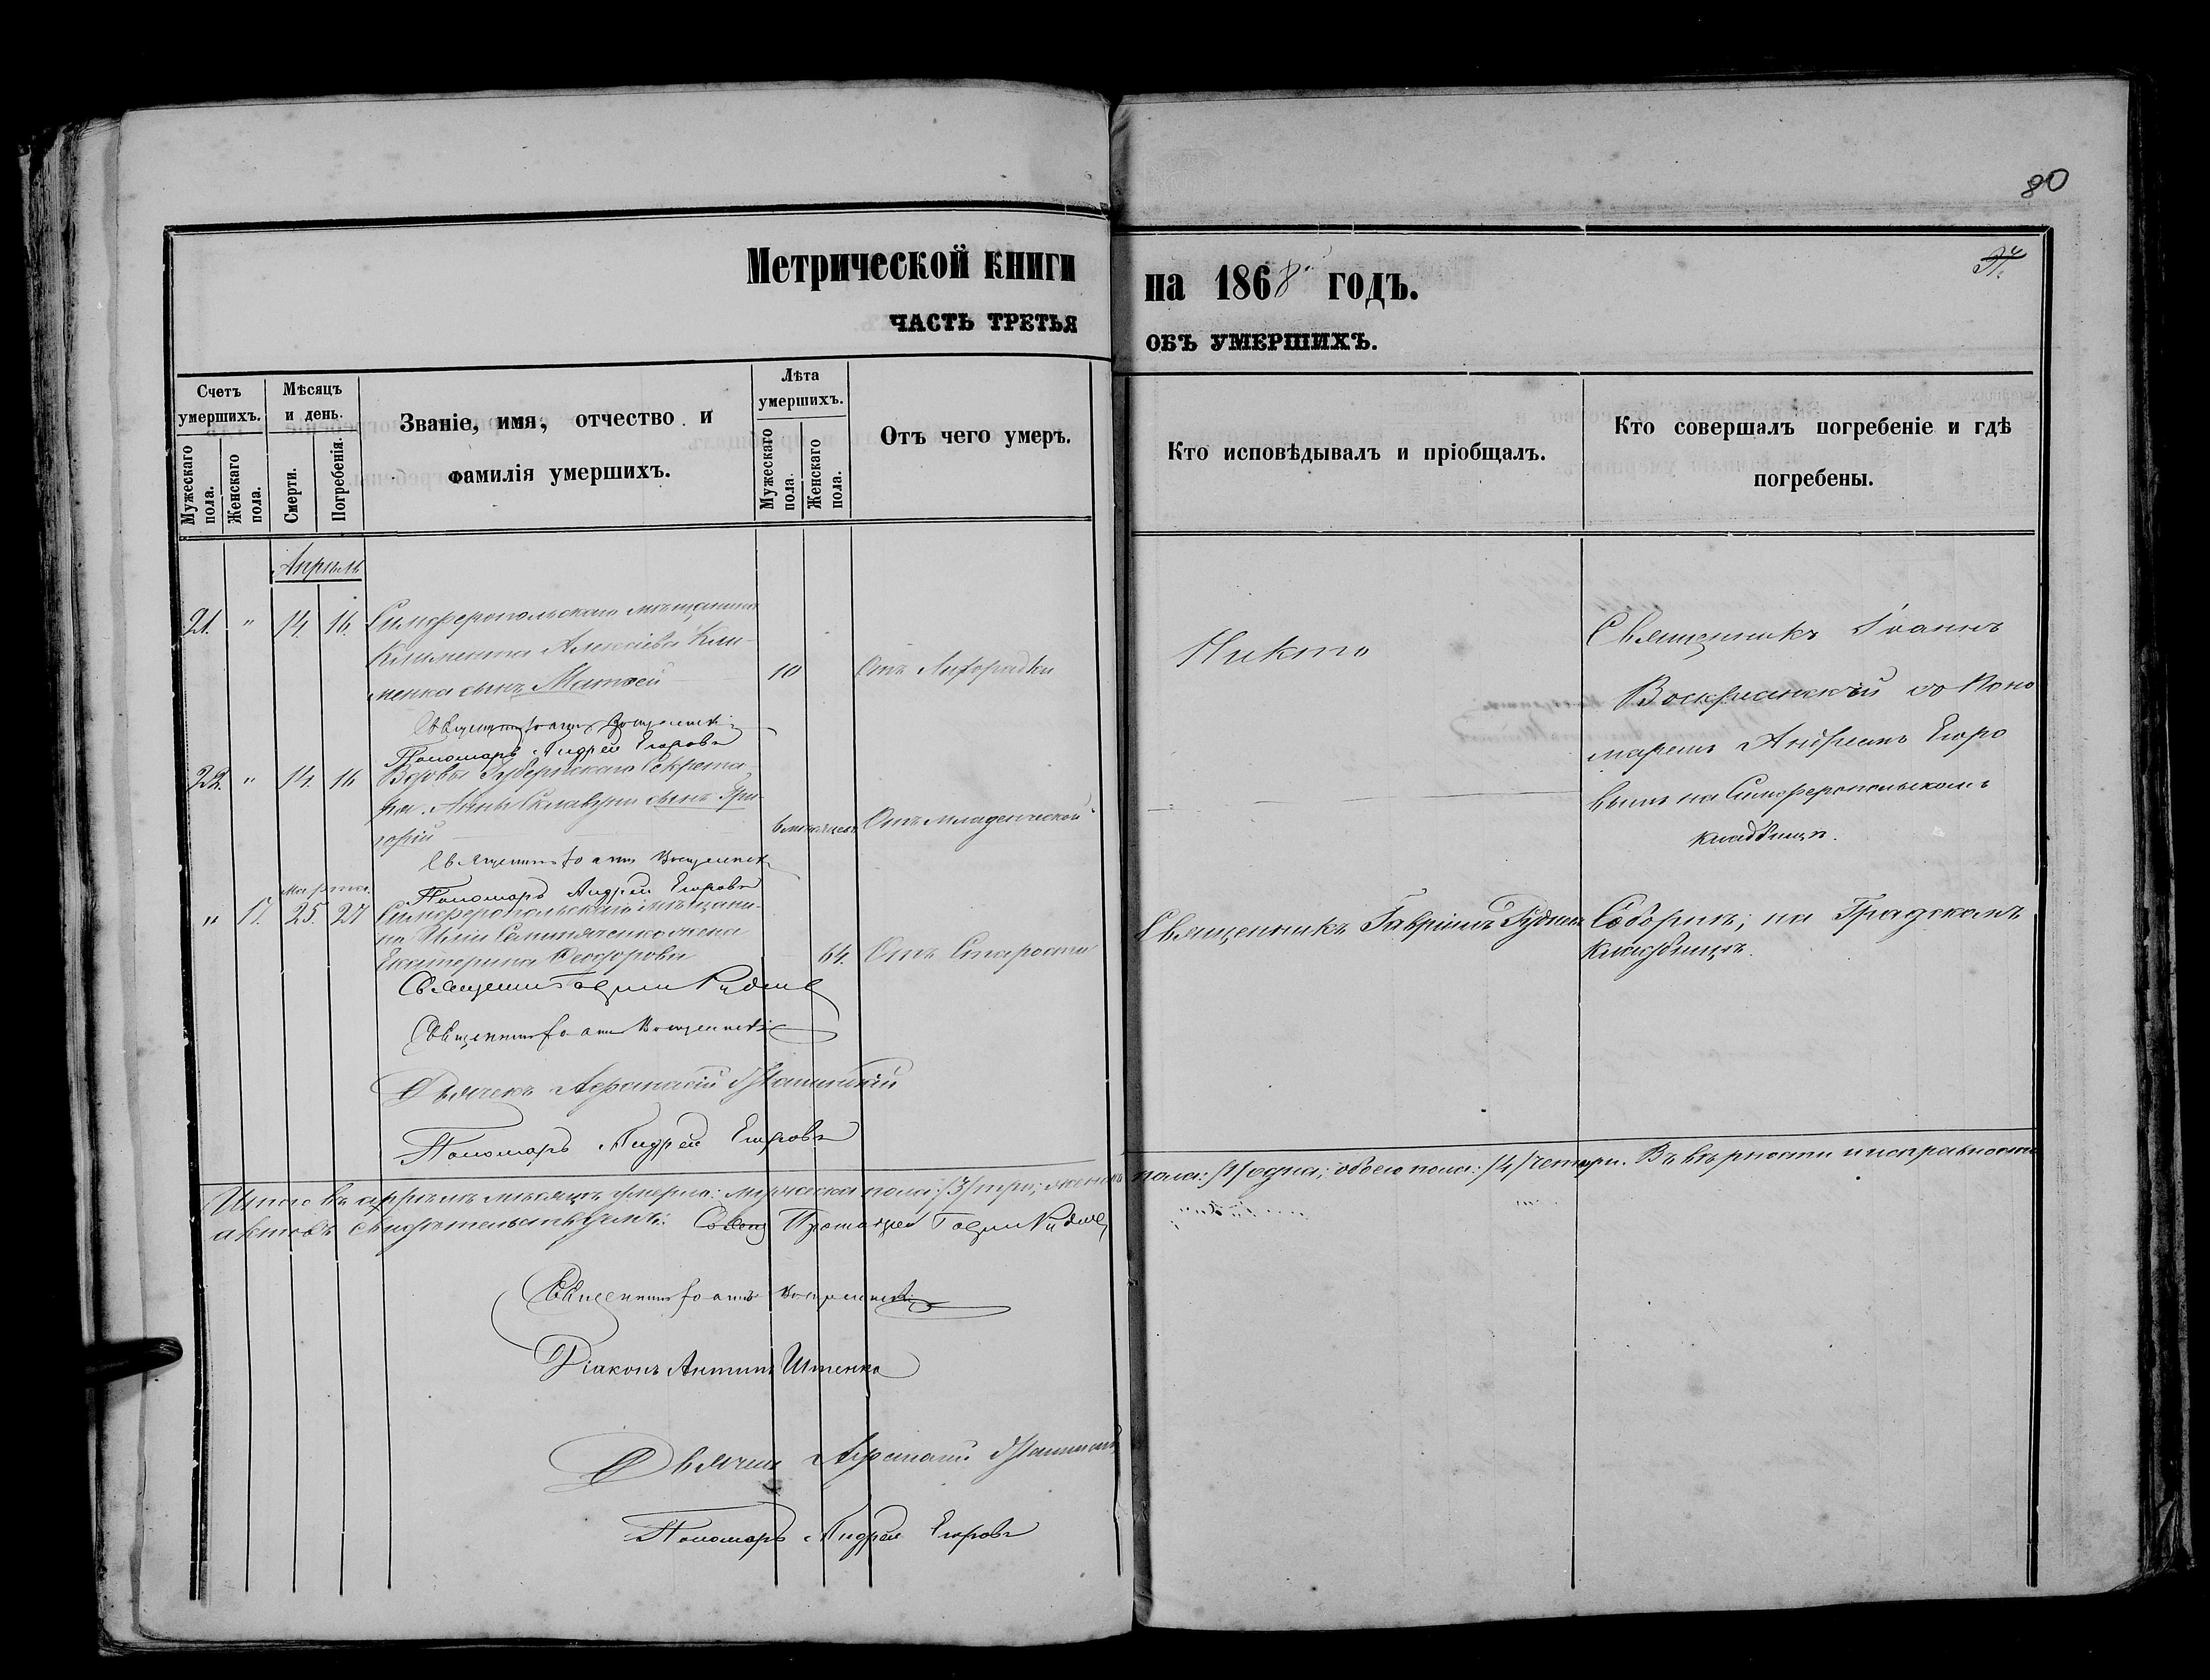 80
Метрической книги
на 1868 годъ.
ЧАСТЬ ТРЕТЬЯ
ОБЪ УМЕРШИХЪ.
Счетъ умершихъ.
Мужескаго пола.
Женскаго пола.
Мѣсяцъ и день.
Смерти.
Погребенія.
Званіе, имя, отчество и
фамилія умершихъ.
Лѣта умершихъ.
Мужескаго пола.
Женскаго пола.
Отъ чего умеръ.
Кто исповѣдывалъ и пріобщалъ.
Кто совершалъ погребеніе и гдѣ
погребены.
Апрѣль
21. " 14 16. Симферопольскаго мѣщанина
Климента Алексіева Кли-
менка сынъ Матвей 10 Отъ Лихорадки
Никто
Священникъ Іоаннъ
Воскресенскій со Поно
маремъ Андреемъ Егоро
вымъ на Симферопольскомъ
кладбищѣ.
Священникъ Іоаннъ Воскресенскій
Пономарь Андрей Егоровъ
22. " 14. 16 Вдовы Губернскаго Секрета-
ря Анны сынъ Гри-
горій 6 мѣсяцевъ Отъ младенческой
Священникъ Іоаннъ Воскресенскій
Пономарь Андрей Егоровъ
Марта.
" 17. 25. 27 Симферопольскаго мѣщани-
на Иліи жена
Екатерина Феодорова 64. Отъ Старости
Священникъ Гавріилъ
Соборнѣ, на Градскомъ
кладбищѣ.
Священникъ Гавріилъ
Священникъ Іоаннъ Воскресенскій
Дьячекъ Афанасій
Пономарь Андрей Егоровъ
Итого въ апрѣлѣ мѣсяцѣ умерло: мужеска пола: /3/ три; женска пола: /1/ одна; обоего пола: /4/ четыри. Въ вѣрности и исправности
актовъ свидѣтельствуемъ: Гавріилъ
Священникъ Іоаннъ Воскресенскій
Діаконъ Антипъ Ищенко
Дьячекъ Афанасій
Пономарь Андрей Егоровъ